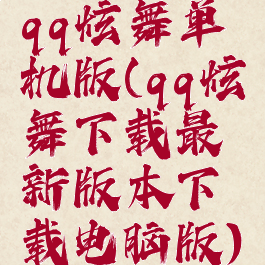 qq炫舞单
机版(qq炫
舞下载最
新版本下
载电脑版)